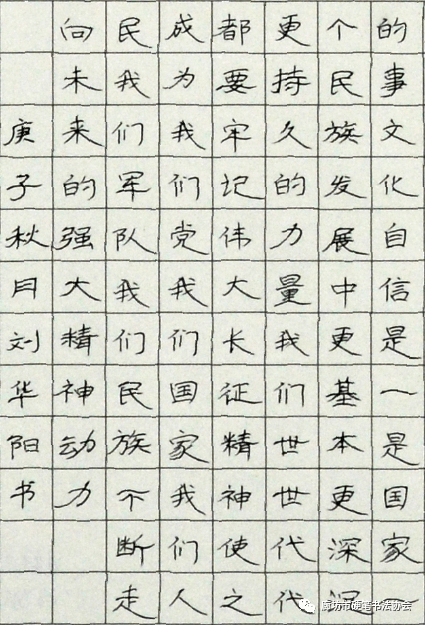 的事文化自信是一是国家
个民族发展中更基本更深沉
更持久的力量我们世世代代
都要牢记伟大长征精神使之
成为我们党我们国家我们人
民我们军队我们民族不断走
向未来的强大精神动力
庚子秋月刘华阳书
廊坊市硬笔书法协会